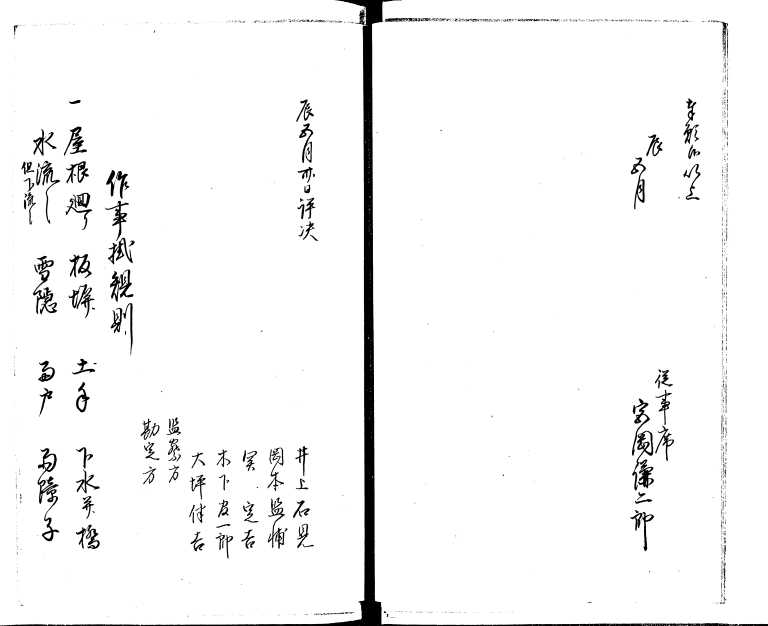 奉願候以上
辰
五月
従事席
宮岡儀二郎
辰五月廿日評决
井上石見
岡本監輔
冥定吉
木下友一郎
大坪伴吉
監察方
勘定方
作事掛規則
一 屋根廻り 板塀 土手 下水并橋
水流し 雪隠 雨戸 雨障子
但下流し